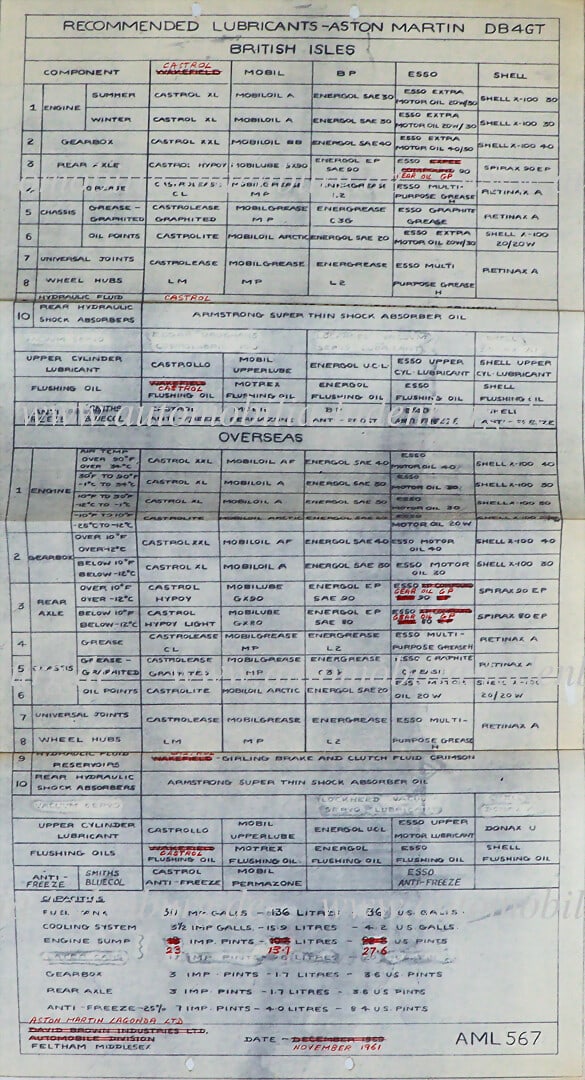 RECOMMENDED LUBRICANTS – ASTON MARTIN DB4GT
BRITISH ISLES
COMPONENT CASTROL WAKEFIELD MOBIL BP ESSO SHELL
1 ENGINE SUMMER CASTROL XL MOBILOIL A ENERGOL SAE 30 ESSO EXTRA MOTOR OIL 20W/30 SHELL X-100 30
WINTER CASTROL XL MOBILOIL A ENERGOL SAE 30 ESSO EXTRA MOTOR OIL 20W/30 SHELL X-100 30
2 GEARBOX CASTROL XXL MOBILOIL BB ENERGOL SAE 40 ESSO EXTRA MOTOR OIL 40/50 SHELL X-100 40
3 REAR AXLE CASTROL HYPOY MOBILUBE GX90 ENERGOL EP SAE 90 ESSO GEAR OIL GP 90 SPIRAX 90 EP
GREASE CL MOBILGREASE MP L2 ESSO MULTI-PURPOSE GREASE H RETINAX A
5 CHASSIS GREASE – GRAPHITED CASTROLEASE GRAPHITED MOBILGREASE MP ENERGREASE C3G ESSO GRAPHITE GREASE RETINAX A
6 OIL POINTS CASTROLITE MOBILOIL ARCTIC ENERGOL SAE 20 ESSO EXTRA MOTOR OIL 20W/30 SHELL X-100 20/20W
7 UNIVERSAL JOINTS CASTROLEASE MOBILGREASE ENERGREASE ESSO MULTI RETINAX A
8 WHEEL HUBS LM MP L2 PURPOSE GREASE H
HYDRAULIC FLUID CASTROL
10 REAR HYDRAULIC SHOCK ABSORBERS ARMSTRONG SUPER THIN SHOCK ABSORBER OIL
UPPER CYLINDER LUBRICANT CASTROLLO MOBIL UPPERLUBE ENERGOL U.C.L. ESSO UPPER CYL. LUBRICANT SHELL UPPER CYL. LUBRICANT
FLUSHING OIL WAKEFIELD CASTROL FLUSHING OIL MOTREX FLUSHING OIL ENERGOL FLUSHING OIL ESSO FLUSHING OIL SHELL FLUSHING OIL
SMITHS BLUECOL
OVERSEAS
1 ENGINE AIR TEMP OVER 90°F OVER 32°C CASTROL XXL MOBILOIL AF ENERGOL SAE 40 ESSO MOTOR OIL 40 SHELL X-100 40
CASTROL XL MOBILOIL A ENERGOL SAE 30 ESSO MOTOR OIL 30 SHELL X-100 30
10°F TO 30°F -12°C TO -1°C CASTROL XL MOBILOIL A ENERGOL SAE 30 ESSO MOTOR OIL 30 SHELL X-100 30
CASTROLITE MOBILOIL ARCTIC MOTOR OIL 20W
2 GEARBOX OVER 10°F OVER -12°C CASTROL XXL MOBILOIL AF ENERGOL SAE 40 ESSO MOTOR OIL 40 SHELL X-100 40
BELOW 10°F BELOW -12°C CASTROL XL MOBILOIL A ENERGOL SAE 30 ESSO MOTOR OIL 30 SHELL X-100 30
3 REAR AXLE OVER 10°F OVER -12°C CASTROL HYPOY MOBILUBE GX90 ENERGOL EP SAE 90 ESSO GEAR OIL GP 90 SPIRAX 90 EP
BELOW 10°F BELOW -12°C CASTROL HYPOY LIGHT MOBILUBE GX80 ENERGOL EP SAE 80 ESSO GEAR OIL GP 80 SPIRAX 80 EP
4 GREASE CASTROLEASE CL MOBILGREASE MP ENERGREASE L2 ESSO MULTI-PURPOSE GREASE H RETINAX A
5 CHASSIS GREASE – GRAPHITED CASTROLEASE MOBILGREASE MP ENERGREASE ESSO GRAPHITE RETINAX A
6 OIL POINTS CASTROLITE MOBILOIL ARCTIC ENERGOL SAE 20 OIL 20W 20/20W
7 UNIVERSAL JOINTS CASTROLEASE MOBILGREASE ENERGREASE ESSO MULTI- RETINAX A
8 WHEEL HUBS LM MP L2 PURPOSE GREASE H
9 HYDRAULIC FLUID RESERVOIRS CASTROL WAKEFIELD – GIRLING BRAKE AND CLUTCH FLUID CRIMSON
10 REAR HYDRAULIC SHOCK ABSORBERS ARMSTRONG SUPER THIN SHOCK ABSORBER OIL
VACUUM SERVO
UPPER CYLINDER LUBRICANT CASTROLLO MOBIL UPPERLUBE ENERGOL UCL ESSO UPPER MOTOR LUBRICANT DONAX U
FLUSHING OILS WAKEFIELD CASTROL FLUSHING OIL MOTREX FLUSHING OIL ENERGOL FLUSHING OIL ESSO FLUSHING OIL SHELL FLUSHING OIL
ANTI-FREEZE SMITHS BLUECOL CASTROL ANTI-FREEZE MOBIL PERMAZONE ESSO ANTI-FREEZE
CAPACITIES
FUEL TANK IMP GALLS – 136 LITRES 36 US GALLS.
COOLING SYSTEM 3½ IMP GALLS – 15.9 LITRES – 4.2 US GALLS.
ENGINE SUMP 23 IMP. PINTS – 13.1 LITRES – 27.6 US PINTS
GEARBOX 3 IMP. PINTS – 1.7 LITRES – 3.6 US. PINTS
REAR AXLE 3 IMP. PINTS – 1.7 LITRES – 3.6 US PINTS
ANTI-FREEZE – 25% 7 IMP. PINTS – 4.0 LITRES – 8.4 US. PINTS
ASTON MARTIN LAGONDA LTD
DAVID BROWN INDUSTRIES LTD.
AUTOMOBILE DIVISION
FELTHAM MIDDLESEX
DATE – DECEMBER 1959
NOVEMBER 1961
AML 567